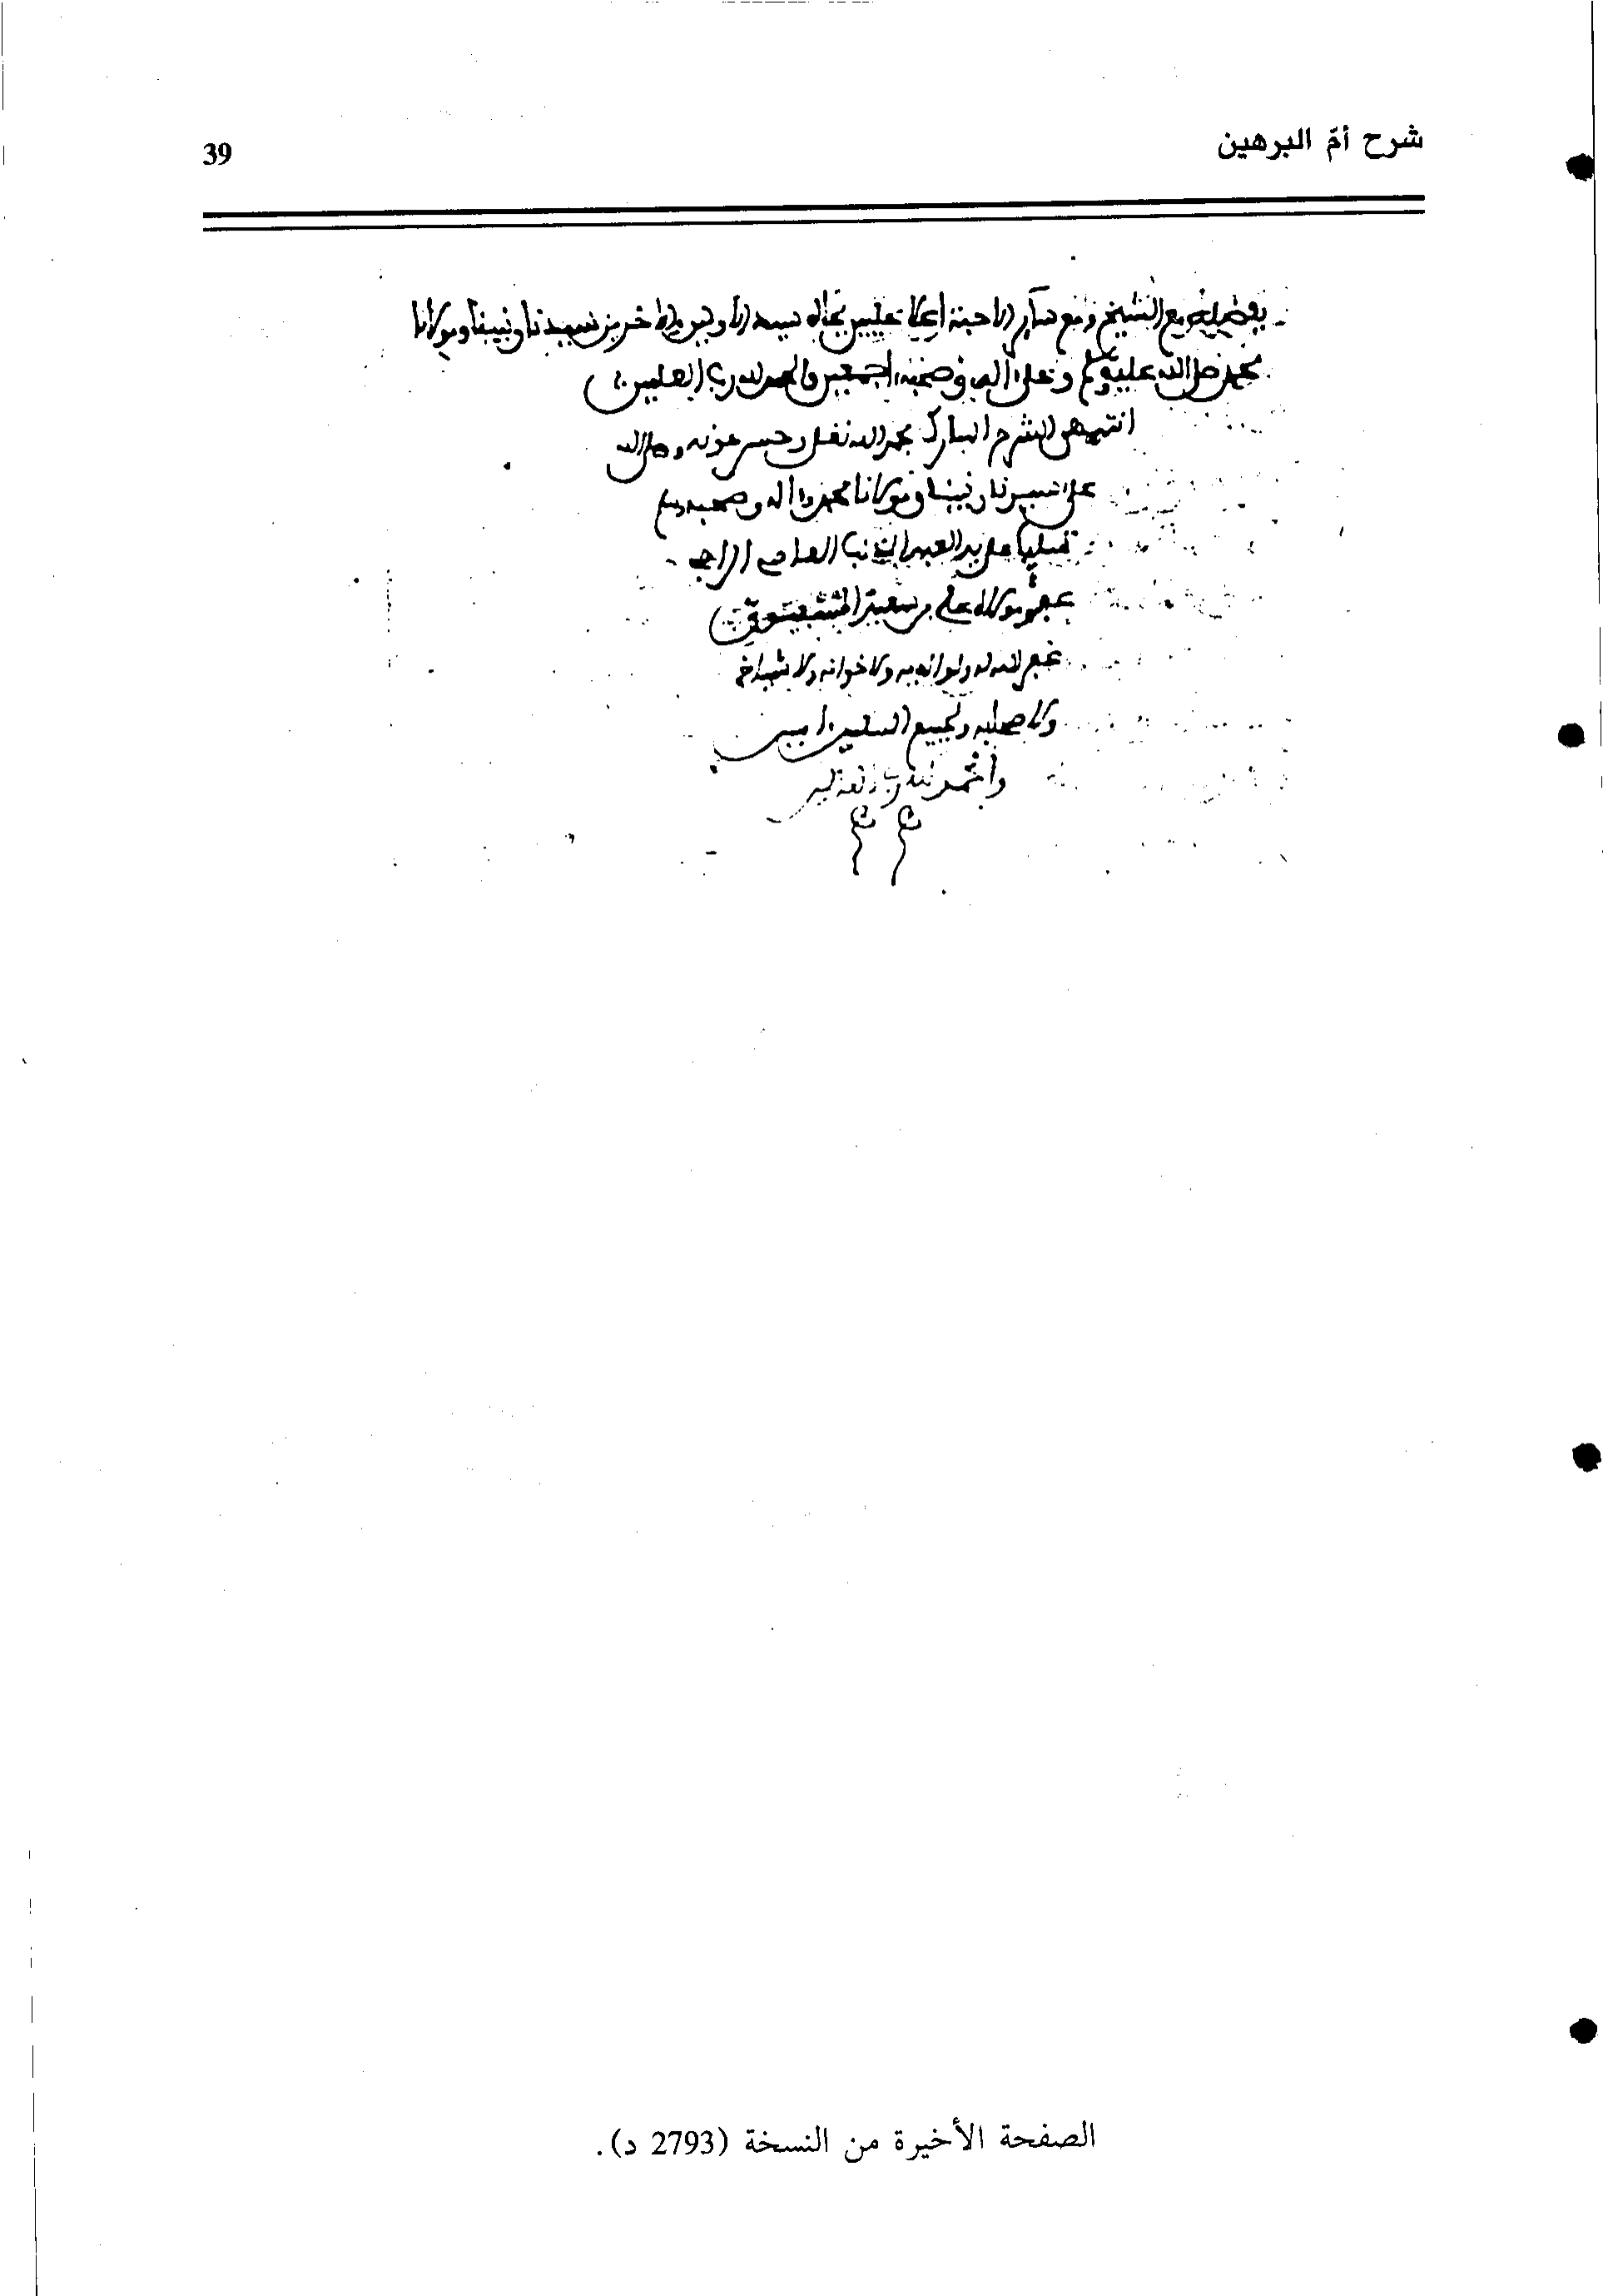 شرح أمّ البرهين
39
بفضله مع الشيخ ومع سآئر الاحبة اعلا عليين بجاه سيد الاولين والاخرين سيدنا ونبينا ومولانا
محمد صلى الله عليه وسلم وعلى اله وصحبه اجمعين والحمد لله رب العلمين
انتهى الشرح المبارك بحمد الله تعلى وحسن عونه وصلى الله
على سيدنا ونبينا ومولانا محمد واله وصحبه وسلم
تسليما على يد العبد المذنب العاصي الراجي
عفو مولاه علي بن سعيد
غفر الله له ولوالديه ولاخوانه ولاشياخه
ولاصحابه ولجميع المسلمين امين
والحمد لله رب العلمين
الصفحة الأخيرة من النسخة (2793 د).